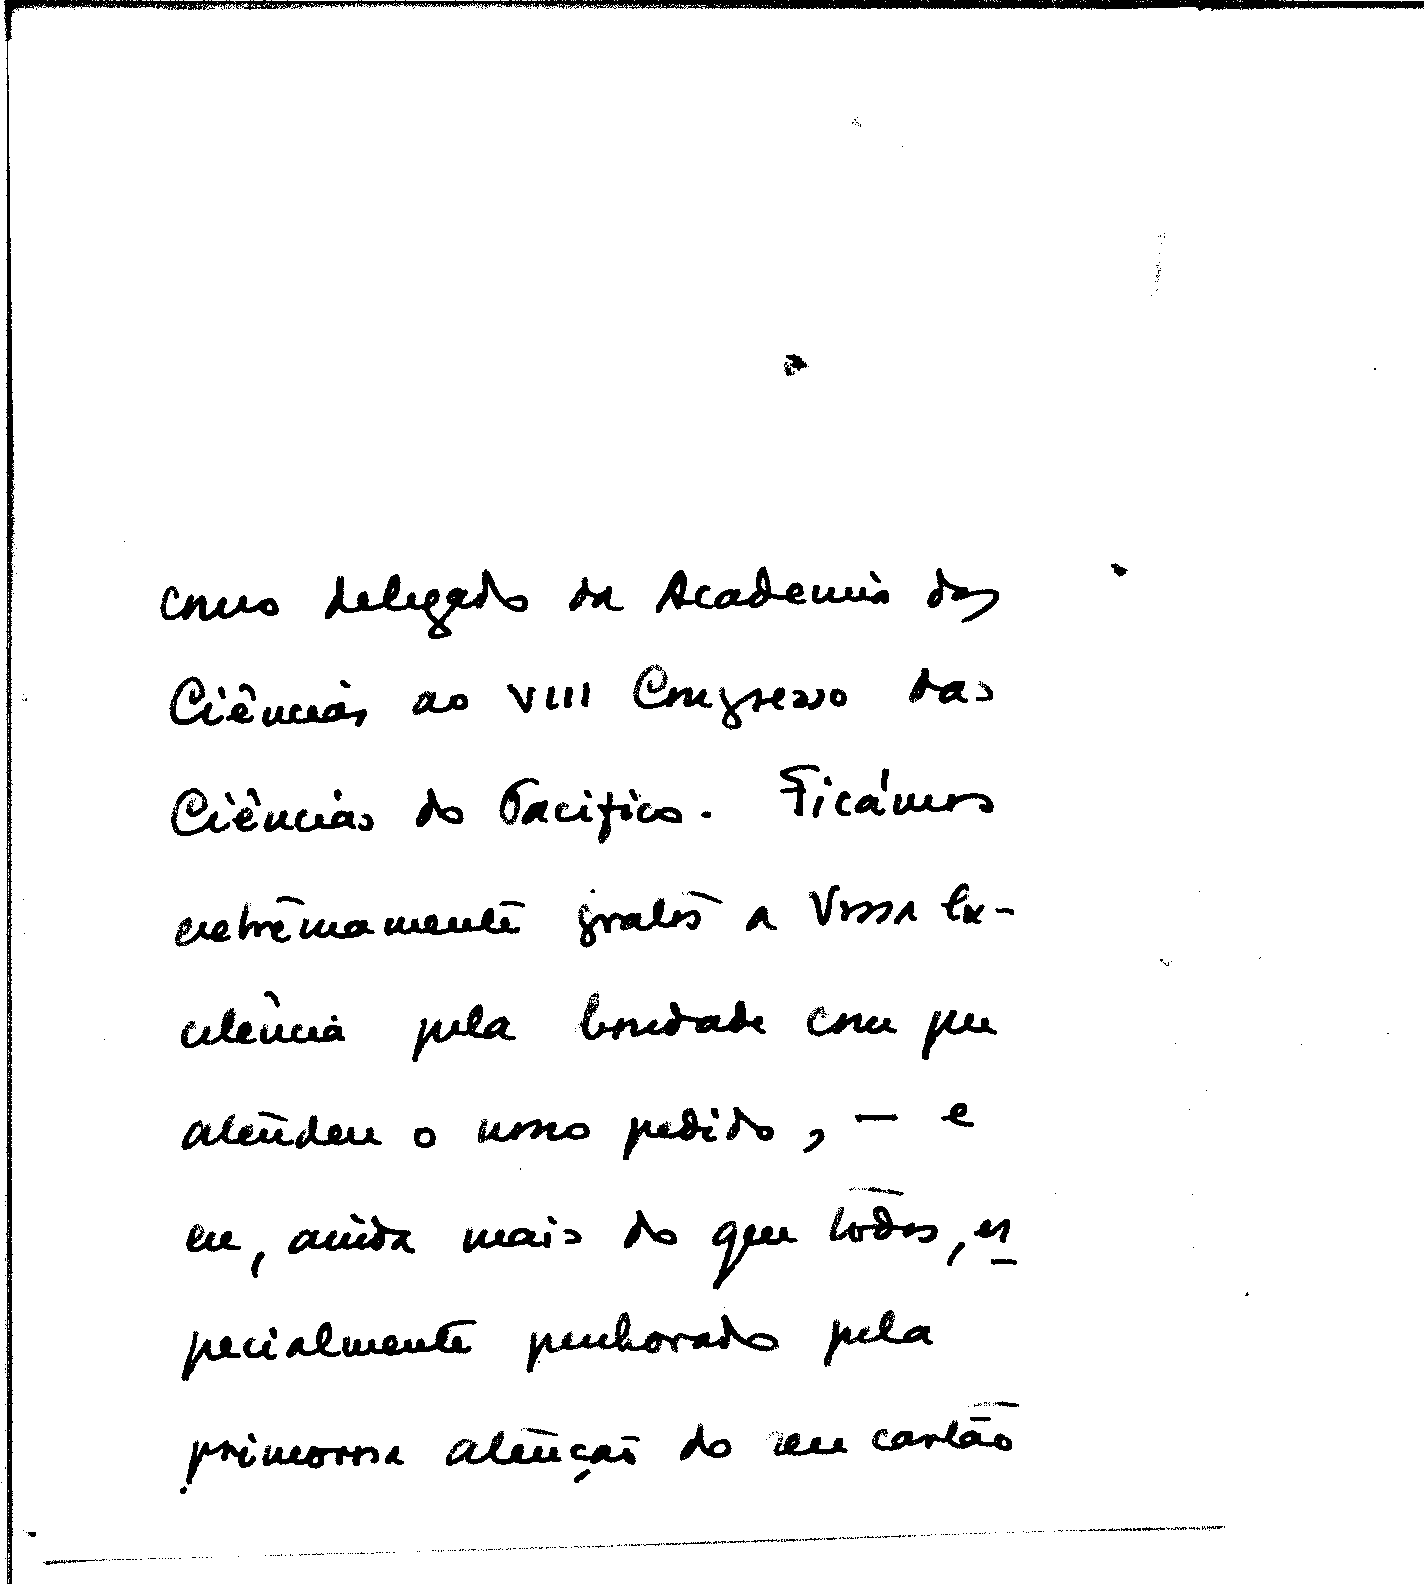 como delegado da Academia das
Ciências ao VIII Congresso das
Ciências do Pacífico. Ficámos
extrêmamente gratos a Vossa Ex-
celência pela bondade com que
atendeu o nosso pedido, — e
eu, ainda mais do que todos, es
pecialmente penhorado pela
primorosa atenção do seu cartão